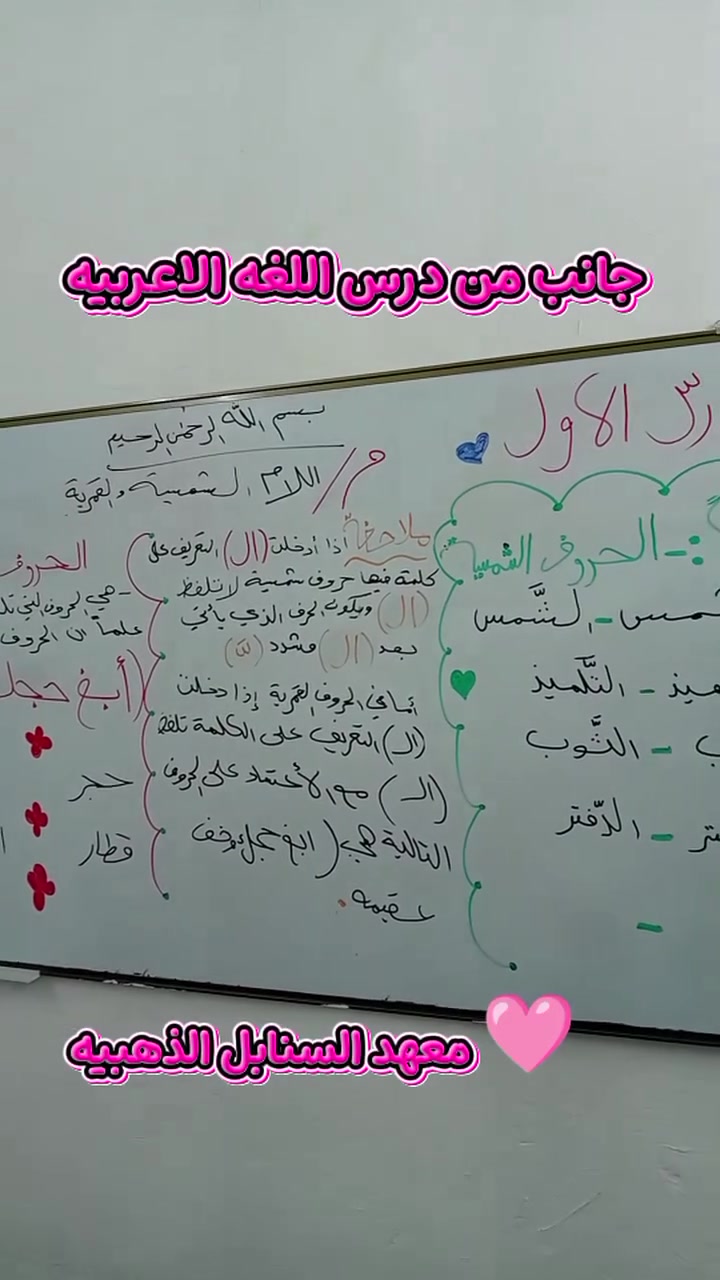 جانب من درس اللغه الاعربيه
رس الأول
بسم الله الرحمن الرحيم
م/ اللام الشمسية والقمرية
:- الحروف الشمسية
شمس - الشَّمس
ميذ - التَّلميذ
ب - الثَّوب
تر - الدّفتر
-
ملاحظة اذا أدخلت (ال) التعريف على
كلمة فيها حروف شمسية لا تلفظ
(ال) ويكون الحرف الذي يأتي
بعد (ال) مشدد
أما في الحروف القمرية إذا دخلت
(ال) التعريف على الكلمة تلفظ
(ال) مع الأعتماد على الحروف
التالية هي (ابغ حجك وخف
عقيمه.
الحروف
- هي الحروف التي تل
علماً ان الحروف
(أبغ حجك
حجر
قطار
معهد السنابل الذهبيه